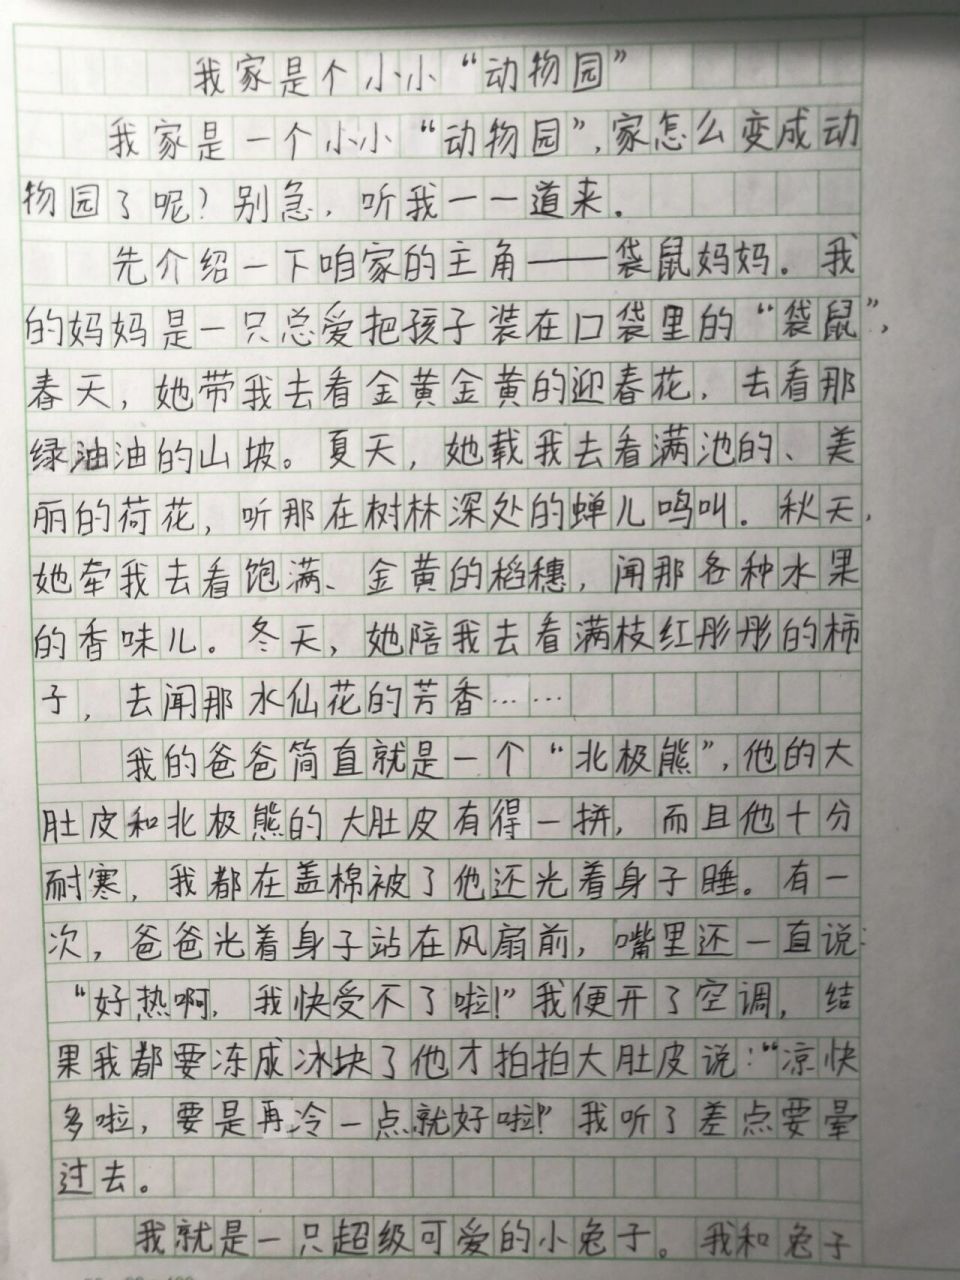 我家是个小小“动物园”
我家是一个小小“动物园”,家怎么变成动
物园了呢?别急,听我一一道来.
先介绍一下咱家的主角——袋鼠妈妈。我
的妈妈是一只总爱把孩子装在口袋里的“袋鼠”,
春天,她带我去看金黄金黄的迎春花,去看那
绿油油的山坡。夏天,她载我去看满池的、美
丽的荷花,听那在树林深处的蝉儿鸣叫。秋天,
她牵我去看饱满、金黄的稻穗,闻那各种水果
的香味儿。冬天,她陪我去看满枝红彤彤的柿
子,去闻那水仙花的芳香……
我的爸爸简直就是一个“北极熊”,他的大
肚皮和北极熊的大肚皮有得一拼,而且他十分
耐寒,我都在盖棉被了他还光着身子睡。有一
次,爸爸光着身子站在风扇前,嘴里还一直说:
“好热啊,我快受不了啦!”我便开了空调,结
果我都要冻成冰块了他才拍拍大肚皮说:“凉快
多啦,要是再冷一点就好啦!”我听了差点要晕
过去。
我就是一只超级可爱的小兔子。我和兔子